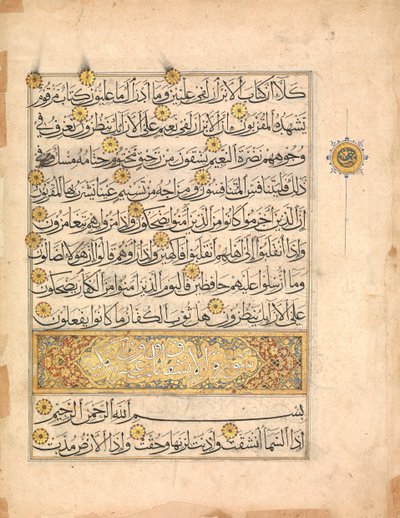 كلا إن كتاب الأبرار لفي عليين وما أدراك ما عليون كتاب مرقوم
يشهده المقربون إن الأبرار لفي نعيم على الأرائك ينظرون تعرف في
وجوههم نضرة النعيم يسقون من رحيق مختوم ختامه مسك وفي
ذلك فليتنافس المتنافسون ومزاجه من تسنيم عينا يشرب بها المقربون
إن الذين أجرموا كانوا من الذين آمنوا يضحكون وإذا مروا بهم يتغامزون
وإذا انقلبوا إلى أهلهم انقلبوا فاكهين وإذا رأوهم قالوا إن هؤلاء لضالون
وما أرسلوا عليهم حافظين فاليوم الذين آمنوا من الكفار يضحكون
على الأرائك ينظرون هل ثوب الكفار ما كانوا يفعلون
سورة الانشقاق
بسم الله الرحمن الرحيم
إذا السماء انشقت وأذنت لربها وحقت وإذا الأرض مدت